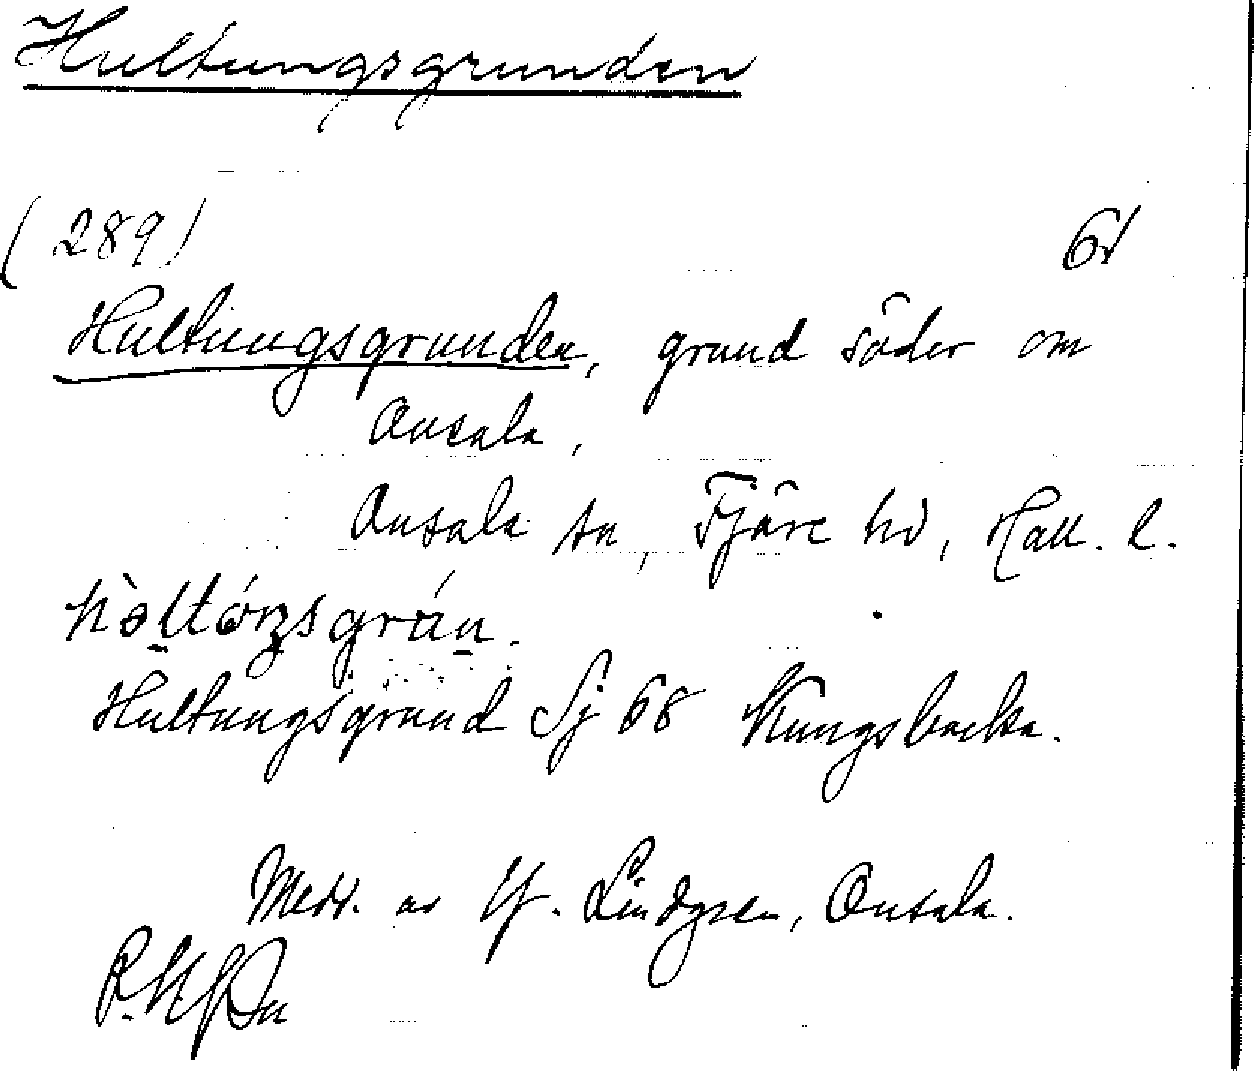 Hultungsgrunden
(289)
Hultungsgrunden, grund söder om
Onsala,
Onsala sn, Fjäre hd, Hall. l.
Hultungsgrund Sj 68 Kungsbacka.
Medd. av Lindgren, Onsala.